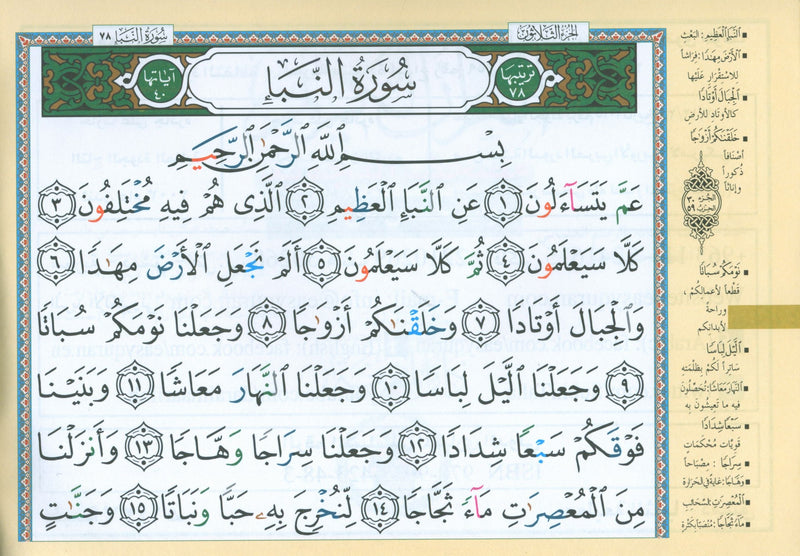 الجزء الثلاثون
سورة النبإ ٧٨
ترتيبها ٧٨
سُورَةُ النَّبَإِ
آياتها ٤٠
بِسْمِ اللَّهِ الرَّحْمَٰنِ الرَّحِيمِ
عَمَّ يَتَسَاءَلُونَ ١ عَنِ النَّبَإِ الْعَظِيمِ ٢ الَّذِي هُمْ فِيهِ مُخْتَلِفُونَ ٣
كَلَّا سَيَعْلَمُونَ ٤ ثُمَّ كَلَّا سَيَعْلَمُونَ ٥ أَلَمْ نَجْعَلِ الْأَرْضَ مِهَٰدًا ٦
وَالْجِبَالَ أَوْتَادًا ٧ وَخَلَقْنَٰكُمْ أَزْوَٰجًا ٨ وَجَعَلْنَا نَوْمَكُمْ سُبَاتًا
٩ وَجَعَلْنَا الَّيْلَ لِبَاسًا ١٠ وَجَعَلْنَا النَّهَارَ مَعَاشًا ١١ وَبَنَيْنَا
فَوْقَكُمْ سَبْعًا شِدَادًا ١٢ وَجَعَلْنَا سِرَاجًا وَهَّاجًا ١٣ وَأَنزَلْنَا
مِنَ الْمُعْصِرَٰتِ مَاءً ثَجَّاجًا ١٤ لِّنُخْرِجَ بِهِ حَبًّا وَنَبَاتًا ١٥ وَجَنَّٰتٍ
■ النَّبَإِ الْعَظِيمِ: البَعْثِ
■ الْأَرْضَ مِهَٰدًا: فِرَاشاً
للاستِقْرَارِ عَلَيْها
■ الْجِبَالَ أَوْتَادًا
كالأوتادِ للأرضِ
■ خَلَقْنَٰكُمْ أَزْوَٰجًا
أصْنَافاً
ذكوراً
وإناثاً
الجزء ٣٠
الحزب ٥٩
■ نَوْمَكُمْ سُبَاتًا
قَطْعاً لأعمالِكُمْ،
وراحةً
لأبدانِكم
■ الَّيْلَ لِبَاسًا
ساتراً لكُمْ بِظُلْمَتِه
■ النَّهَارَ مَعَاشًا: تُحَصِّلُونَ
فيه ما تَعِيشُونَ به
■ سَبْعًا شِدَادًا
قَوِيّاتٍ مُحْكَمَاتٍ
■ سِرَاجًا: مِصْبَاحاً
■ وَهَّاجًا: غايةً في الحَرَارةِ
■ الْمُعْصِرَٰتِ: السُّحُبِ
■ مَاءً ثَجَّاجًا: مُنْصَبّاً بكثرة